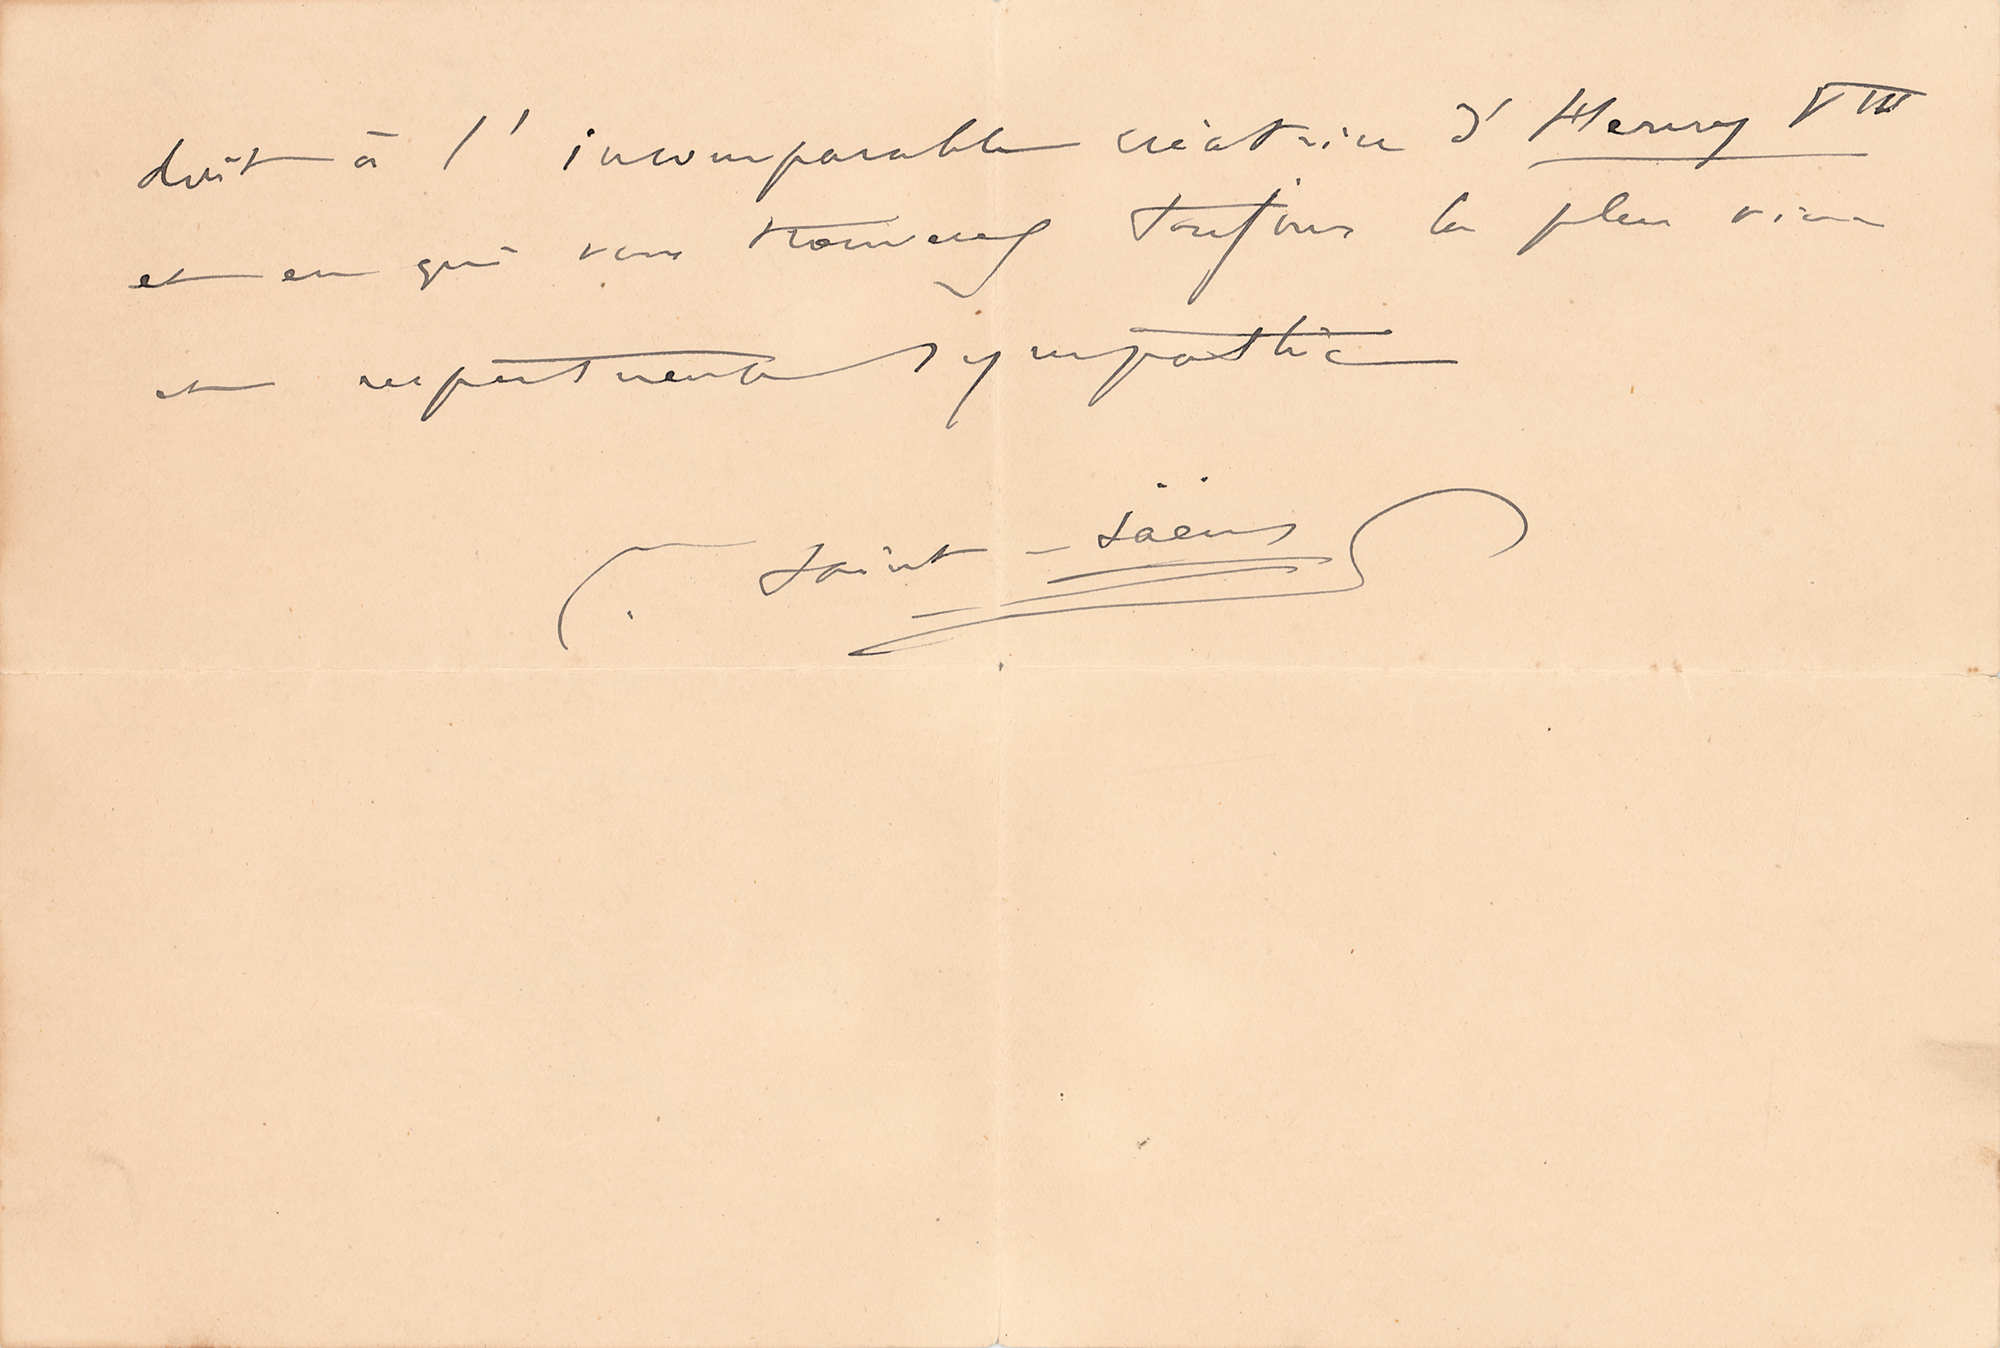 doit à l'incomparable créatrice d'Henry VIII
et en qui vous trouverez toujours la plus vive
et respectueuse sympathie
C. Saint-Saëns